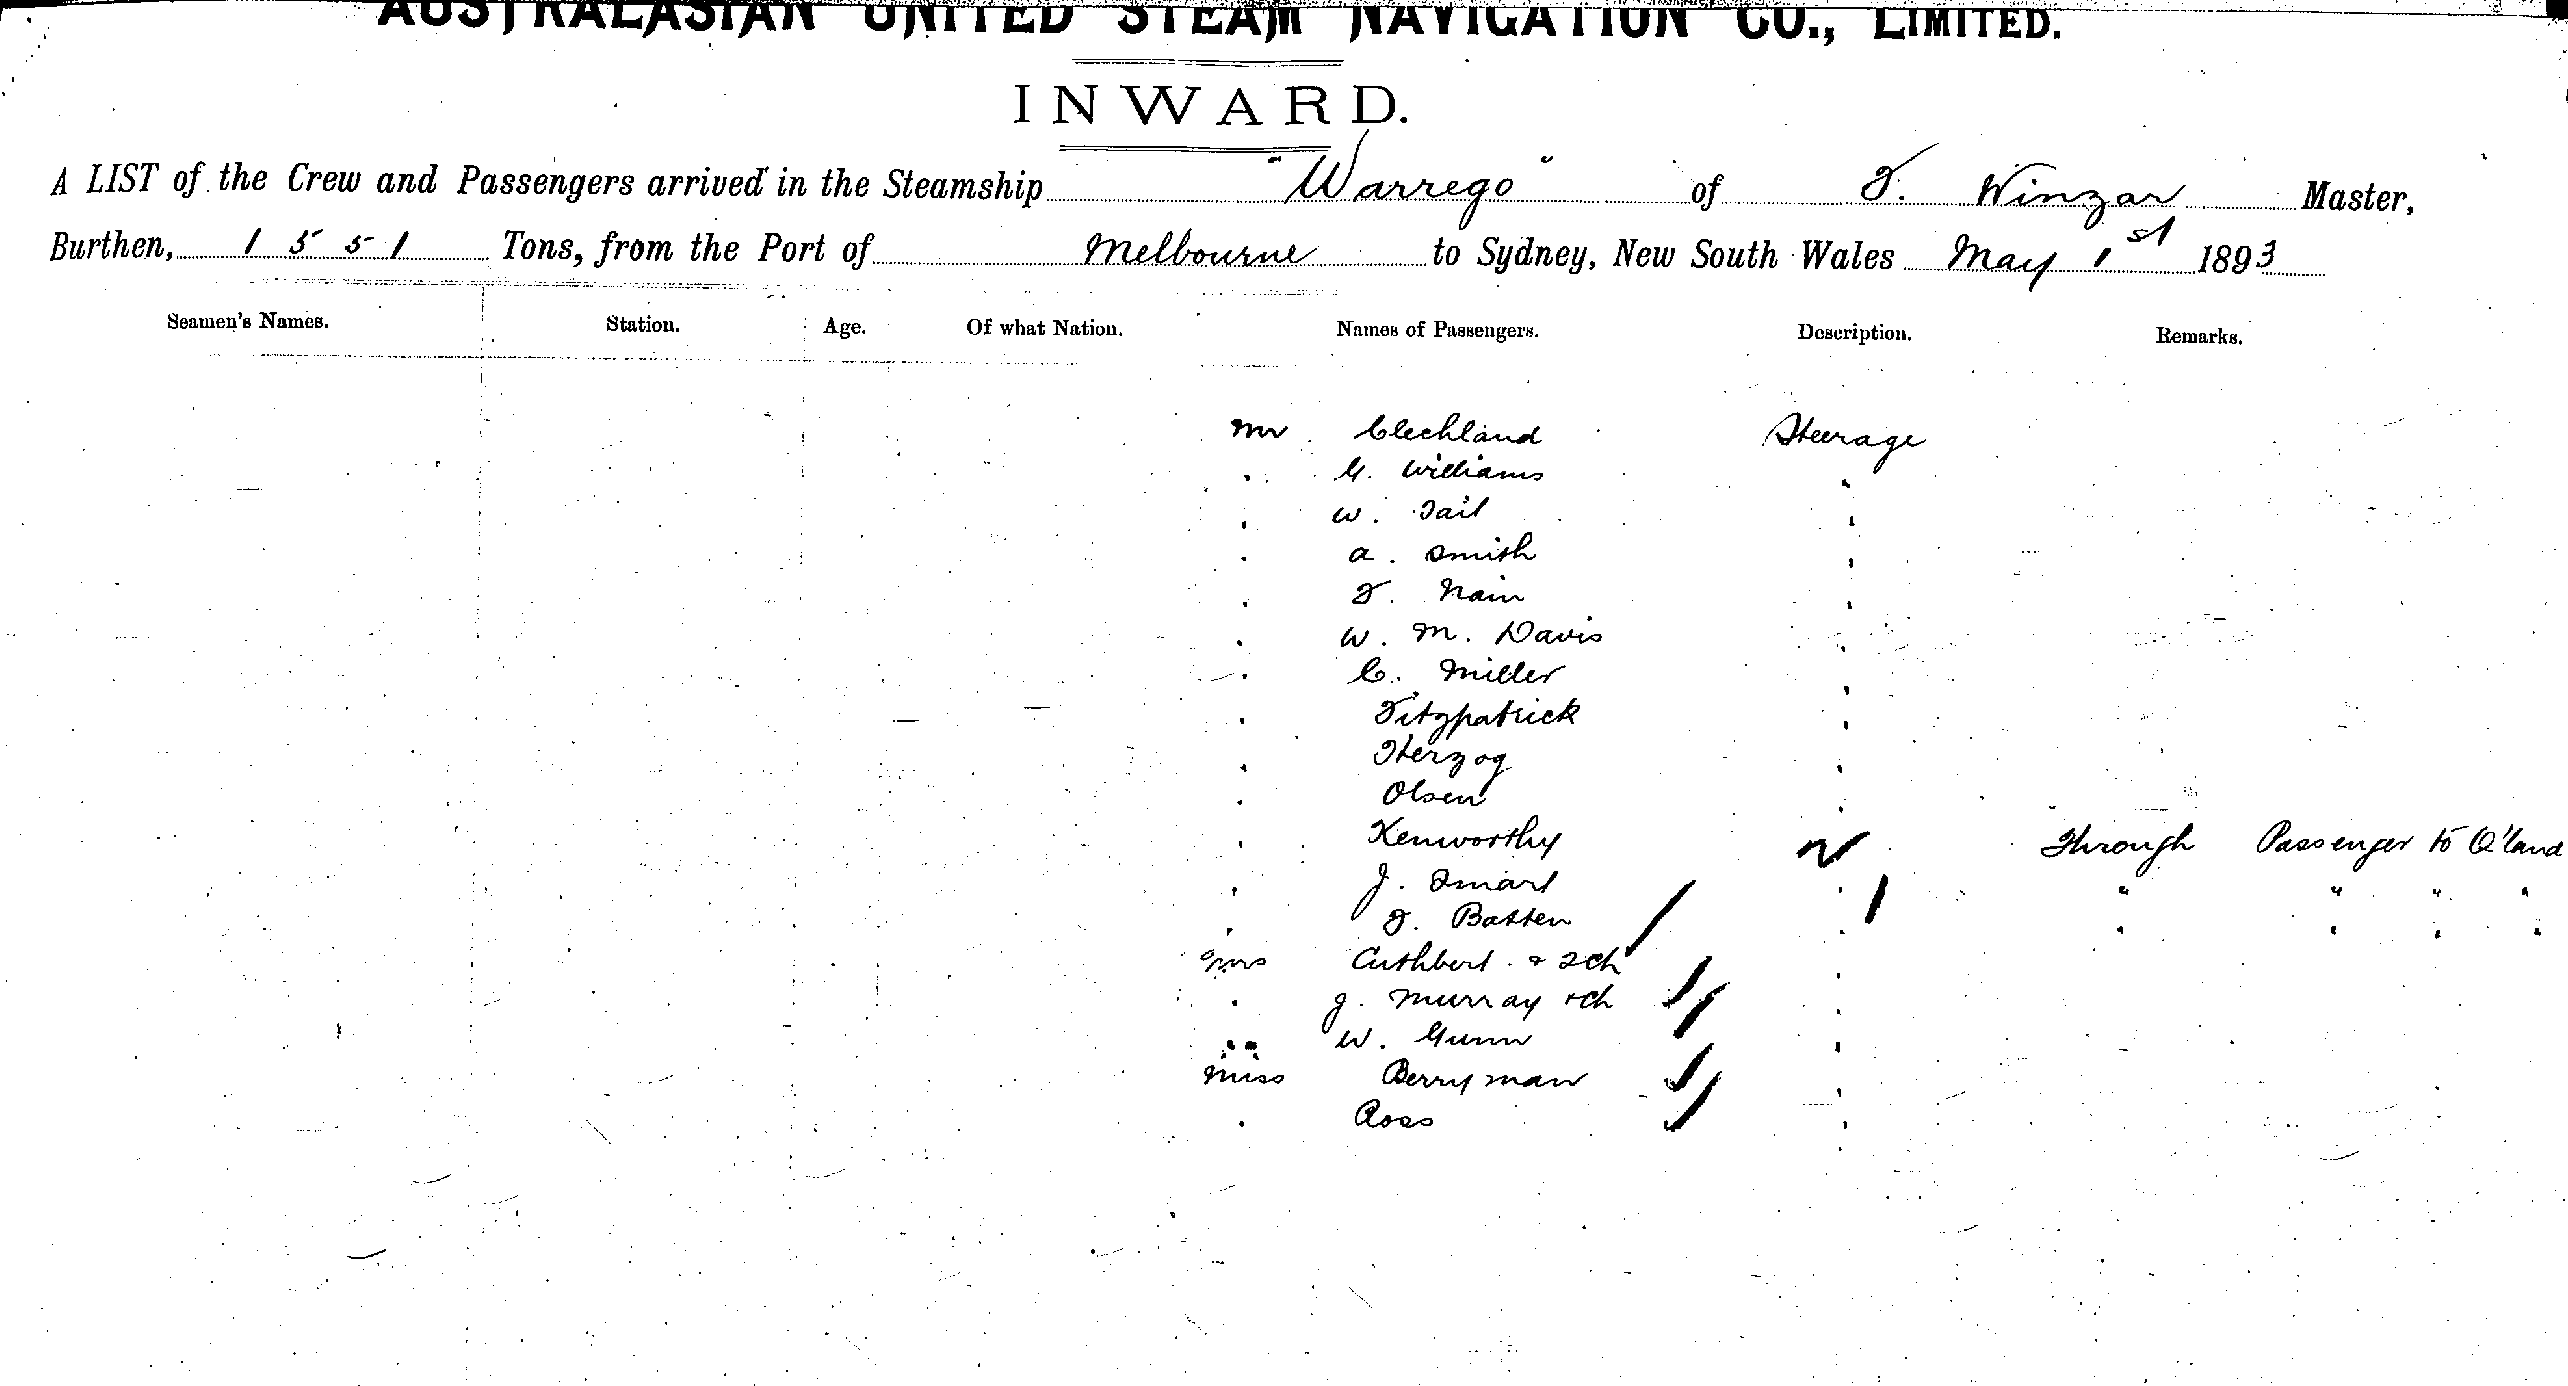 AUSTRALASIAN UNITED STEAM NAVIGATION CO., LIMITED.
INWARD.
A LIST of the Crew and Passengers arrived in the Steamship "Warrego" of T. Winzar Master,
Burthen, 1551 Tons, from the Port of Melbourne to Sydney, New South Wales May 1st 1893
Seamen's Names. Station. Age. Of what Nation. Names of Passengers. Description. Remarks.
Mr Clechland Steerage
" G. Williams "
" W. Tait "
" A. Smith "
" T. Nain "
" W. M. Davis "
" C. Miller "
" Fitzpatrick "
" Herzog "
" Olsen "
" Kenworthy Through Passenger to Q'land
" J. Smart " " " " "
" T. Batten " " " " "
Mrs Cuthbert & 2 ch "
" J. Murray & ch "
" W. Gunn "
Miss Berryman "
" Ross "